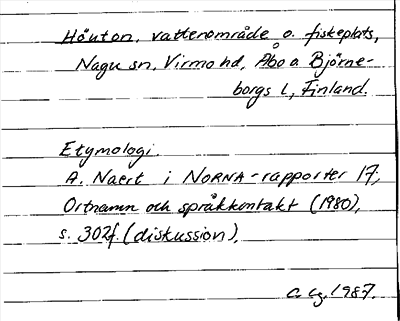 Höuton, vattenområde o. fiskeplats,
Nagu sn, Virmo hd, Åbo o Björne-
borgs l, Finland.
Etymologi.
A. Naert i NORNA-rapporter 17,
Ortnamn och språkkontakt (1980),
s. 302f. (diskussion),
1987.